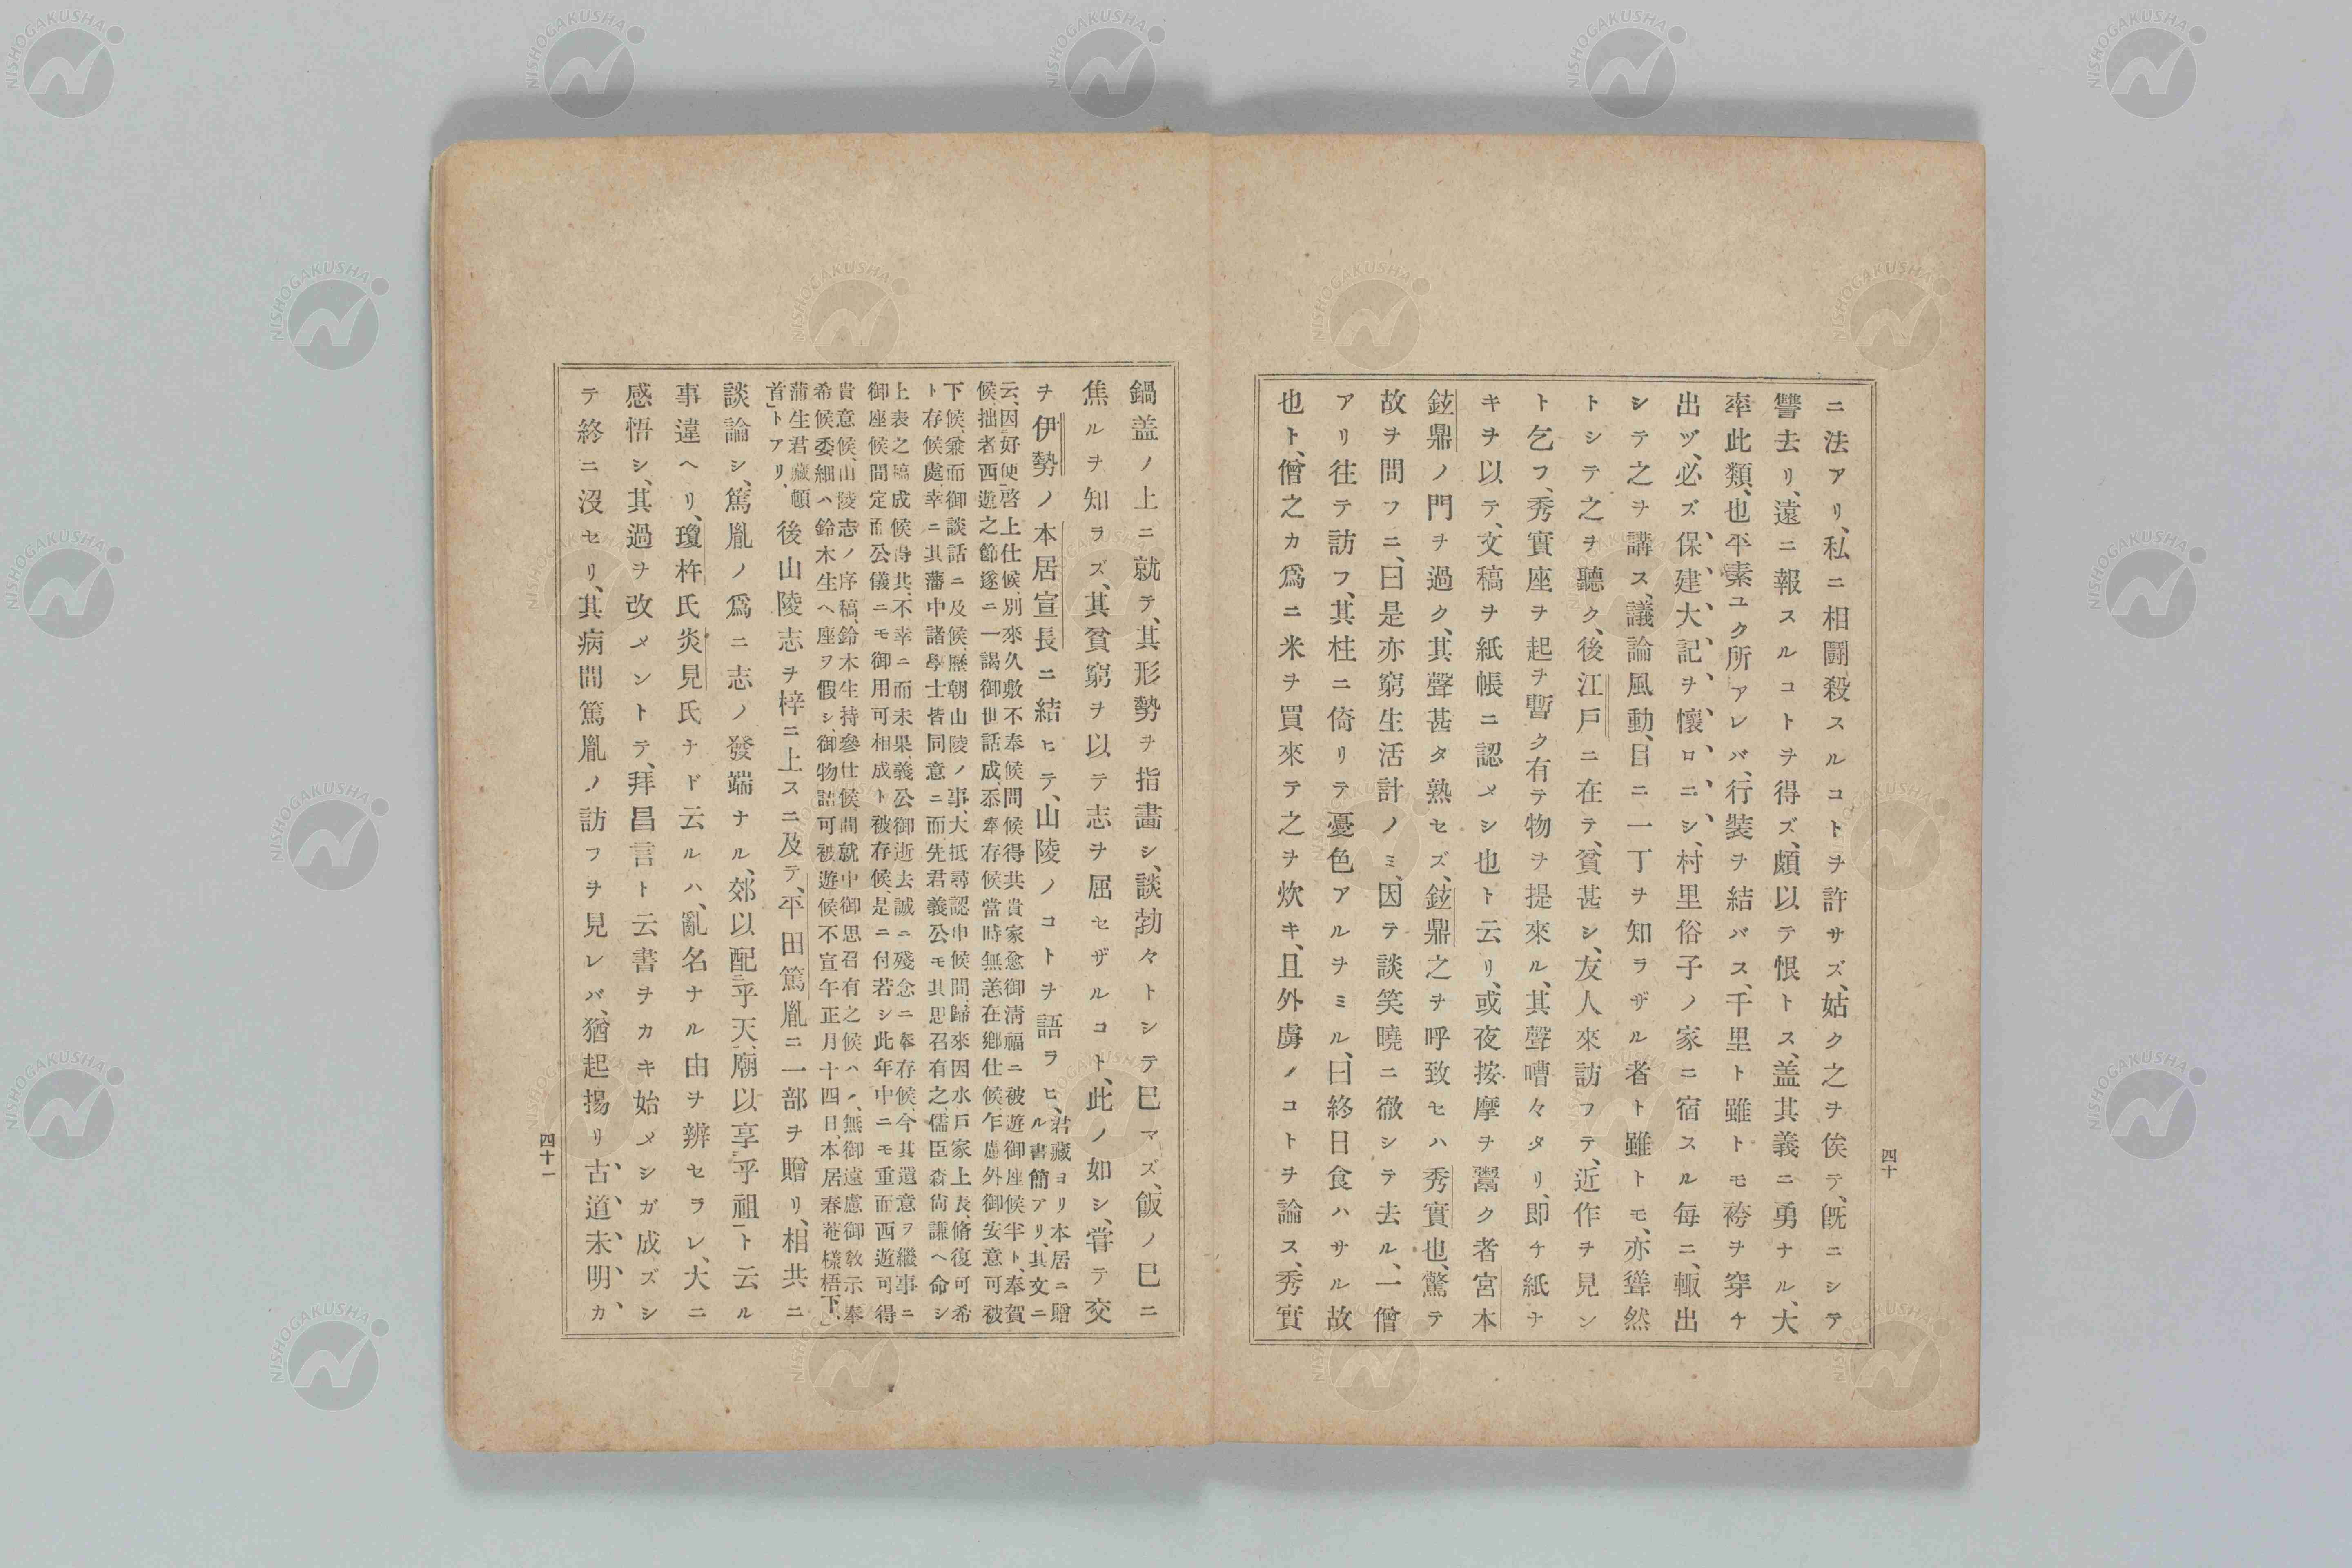 ニ法アリ、私ニ相鬪殺スルコトヲ許サズ、姑ク之ヲ俟テ、既ニシテ
讐去リ、遠ニ報スルコトヲ得ズ、頗以テ恨トス、盖其義ニ勇ナル、大
率此類、也平素ユク所アレバ、行裝ヲ結バス、千里ト雖トモ袴ヲ穿チ
出ヅ、必ズ保、建、大、記、ヲ、懷、ロ、ニ、シ、村里俗子ノ家ニ宿スル每ニ、輙出
シテ之ヲ講ス、議論風動、目ニ一丁ヲ知ラザル者ト雖トモ、亦聳然
トシテ之ヲ聽ク、後江戶ニ在テ、貧甚シ、友人來訪フテ、近作ヲ見ン
ト乞フ、秀實座ヲ起ヲ暫ク有テ物ヲ提來ル、其聲嘈々タリ、即チ紙ナ
キヲ以テ、文稿ヲ紙帳ニ認メシ也ト云リ、或夜按摩ヲ鬻ク者宮本
鉉鼎ノ門ヲ過ク、其聲甚タ熟セズ、鉉鼎之ヲ呼致セハ秀實也、驚テ
故ヲ問フニ、曰是亦窮生活計ノミ、因テ談笑曉ニ徹シテ去ル、一僧
アリ往テ訪フ、其柱ニ倚リテ憂色アルヲミル、曰終日食ハサル故
也ト、僧之カ爲ニ米ヲ買來テ之ヲ炊キ、且外虜ノコトヲ論ス、秀實
四十
鍋盖ノ上ニ就テ、其形勢ヲ指畫シ、談勃々トシテ巳マズ、飯ノ巳ニ
焦ルヲ知ラズ、其貧窮ヲ以テ志ヲ屈セザルコト、此ノ如シ、甞テ交
ヲ伊勢ノ本居宣長ニ結ヒテ、山陵ノコトヲ語ラヒ、君藏ヨリ本居ニ贈
ル書簡アリ、其文ニ
云、因好便、啓上仕候、別來久敷不奉候問候得共貴家愈御淸福ニ被遊御座候半ト、奉賀
候、拙者西遊之節遂ニ一謁御世話成、忝奉存候當時無恙在鄕仕候、乍慮外御安意可被
下候、兼而御談話ニ及候、歷朝山陵ノ事、大抵尋認申候間、歸來因水戶家上表、脩復可希
ト存候處、幸ニ其藩中諸學士皆同意ニ而先君義公モ其思召有之、儒臣森尙謙ヘ命シ
上表之稿成候得共、不幸ニ而未果、義公御逝去誠ニ殘念ニ奉存候、今其遺意ヲ繼事ニ
御座候間定而公儀ニモ御用可相成ト被存候、是ニ付若シ此年中ニモ重而西遊可得
貴意候、山陵志ノ序稿、鈴木生持參仕候間就中御思召有之候ハヽ、無御遠慮御敎示奉
希候委細ハ鈴木生ヘ座ヲ假シ、御物語可被遊候不宣午正月十四日、本居春菴樣梧下、
蒲生君藏頓
首」トアリ、
後山陵志ヲ梓ニ上スニ及テ、平田篤胤ニ一部ヲ贈リ、相共ニ
談論シ、篤胤ノ爲ニ志ノ發端ナル、郊以配乎天、廟以享乎祖ト云ル
事違ヘリ、瓊杵氏炎見氏ナド云ルハ、亂名ナル由ヲ辨セラレ、大ニ
感悟シ、其過ヲ改メントテ、拜昌言ト云書ヲカキ始メシガ成ズシ
テ終ニ沒セリ、其病間篤胤ノ訪フヲ見レバ、猶起揚リ古、道、未、明、カ
四十一